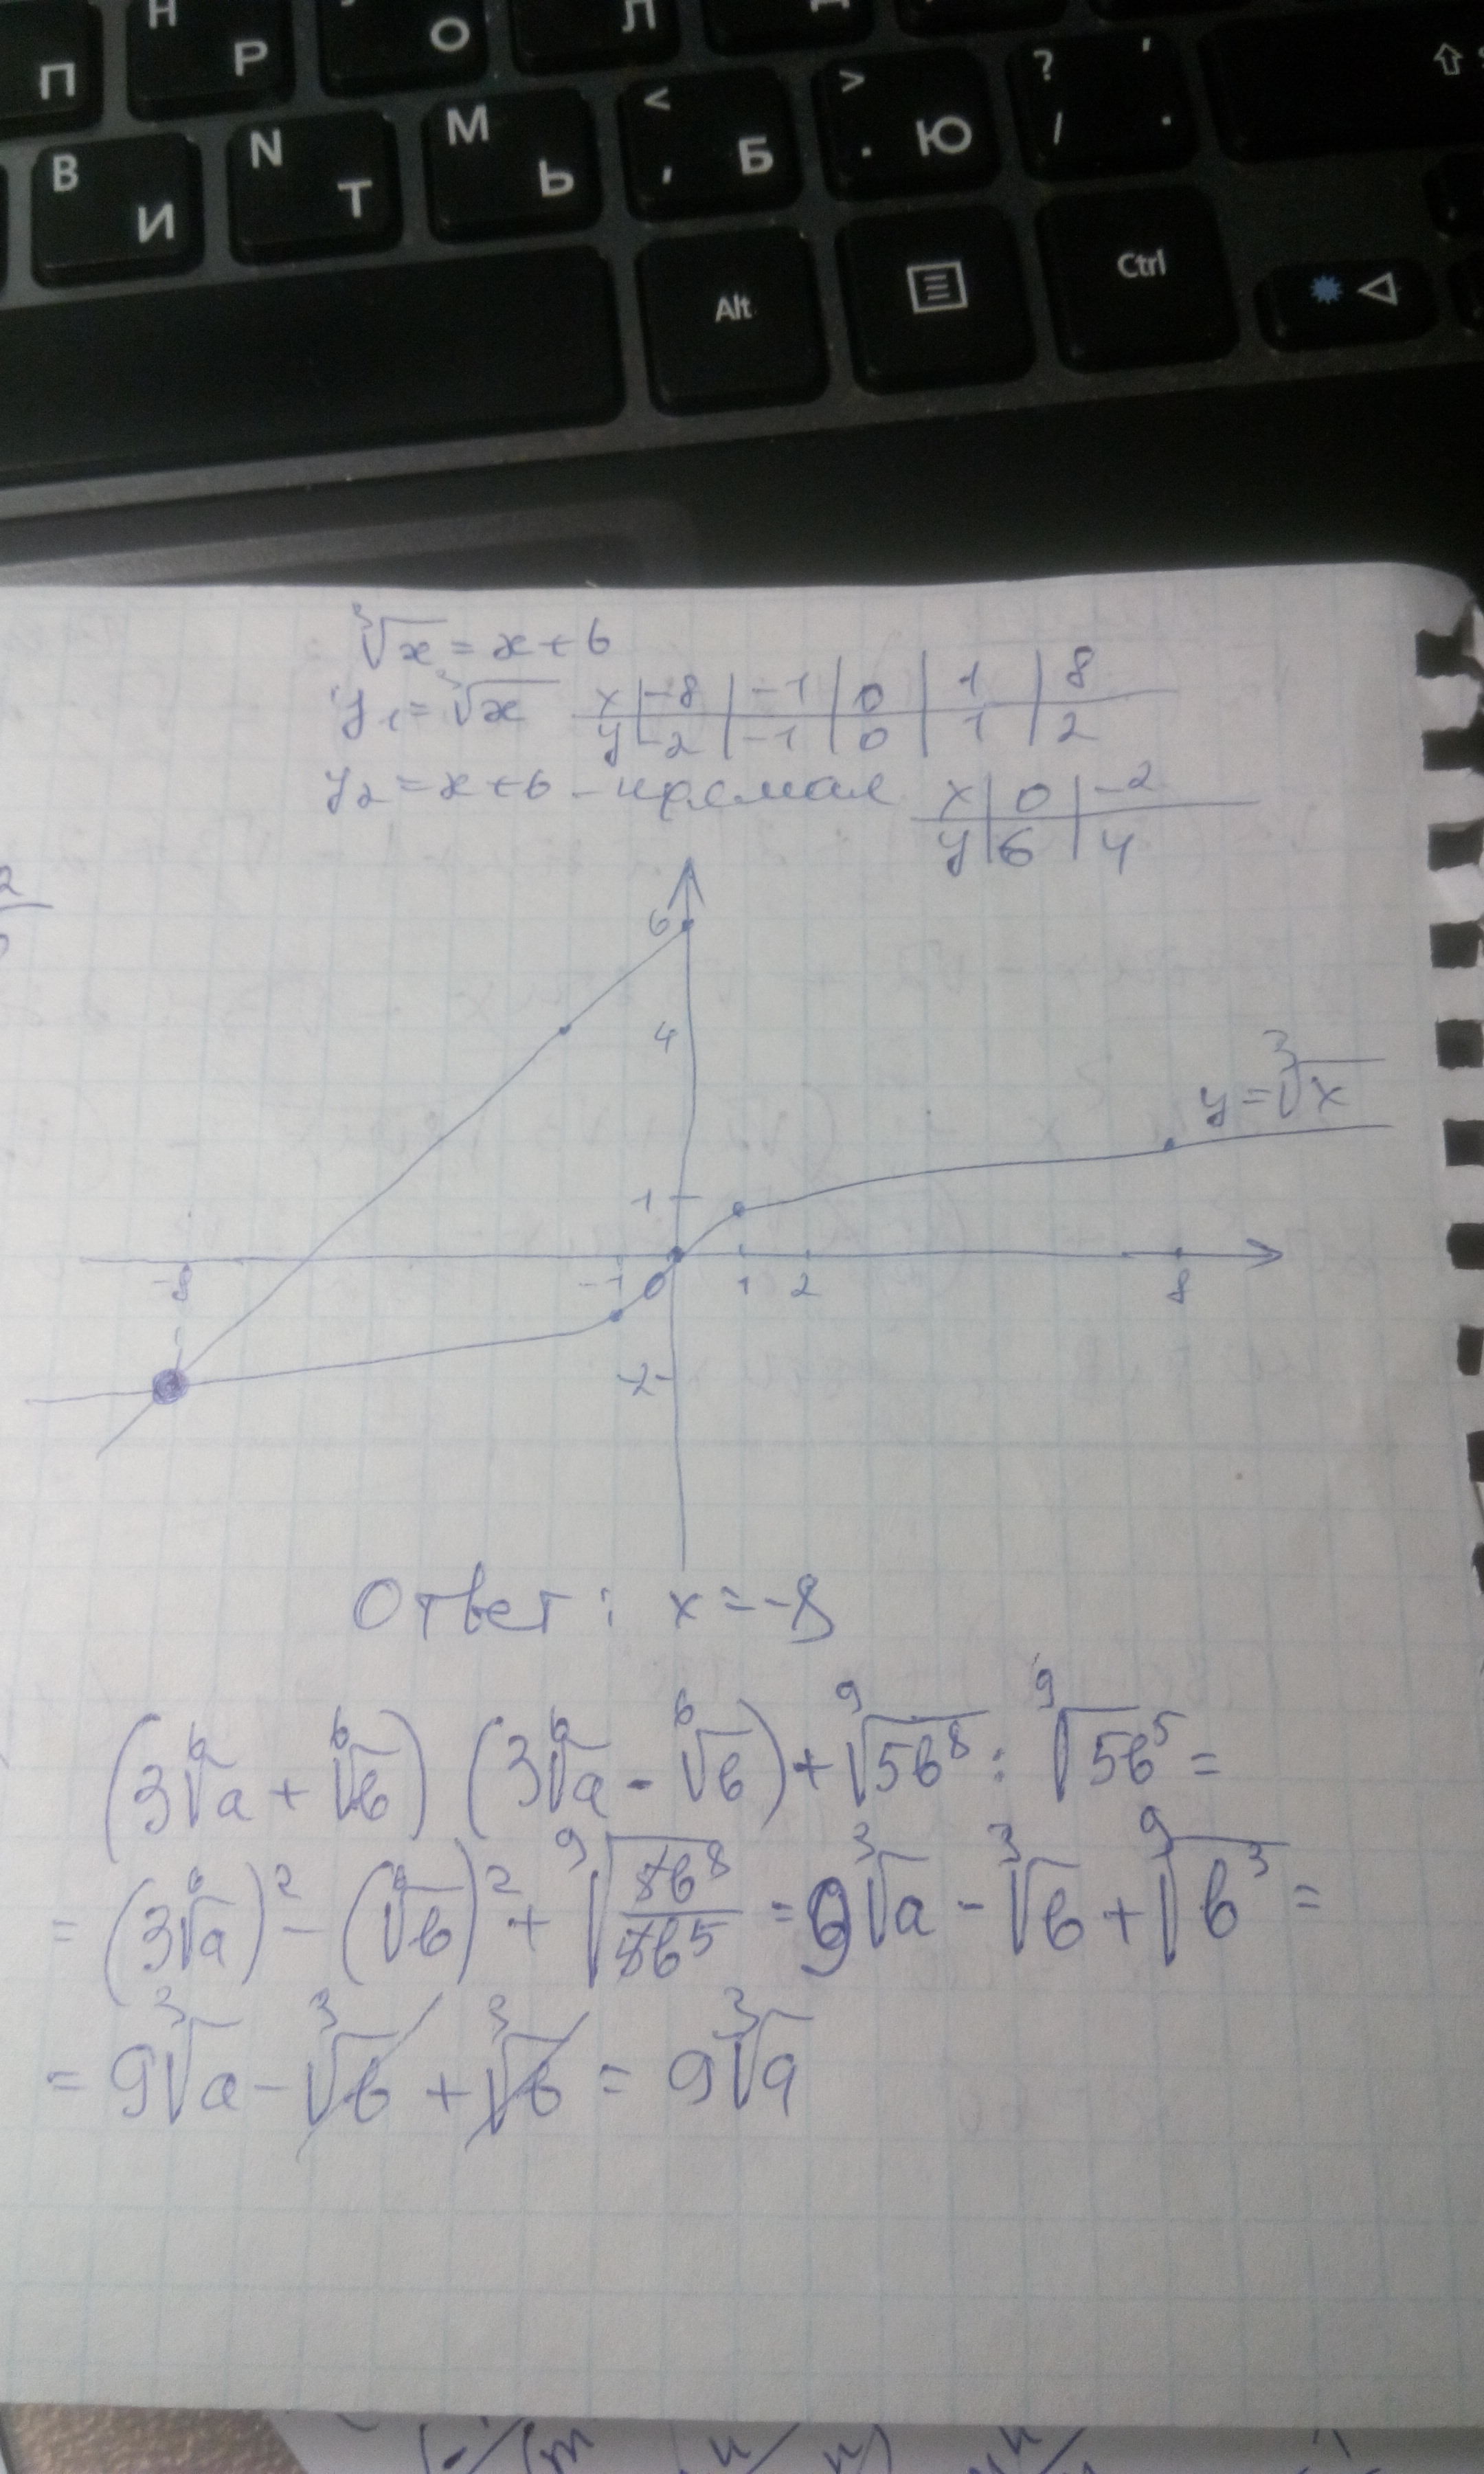 П
Н Р
О
Л
В И
N Т
М Ь
< , Б
> . Ю
? / ' .
Alt
Ctrl
∛x = x+6
y₁ = ∛x x | -8 | -1 | 0 | 1 | 8
y | -2 | -1 | 0 | 1 | 2
y₂ = x+6 - прямая x | 0 | -2
y | 6 | 4
2
6
4
y = ∛x
1
-8 -1 0 1 2 8
-2
Ответ: x = -8
(3⁶√a + ⁶√b) (3⁶√a - ⁶√b) + ⁹√5b⁸ : ⁹√5b⁵ =
= (3⁶√a)² - (⁶√b)² + ⁹√(5b⁸/5b⁵) = 9∛a - ∛b + ⁹√b³ =
= 9∛a - ∛b + ∛b = 9∛a